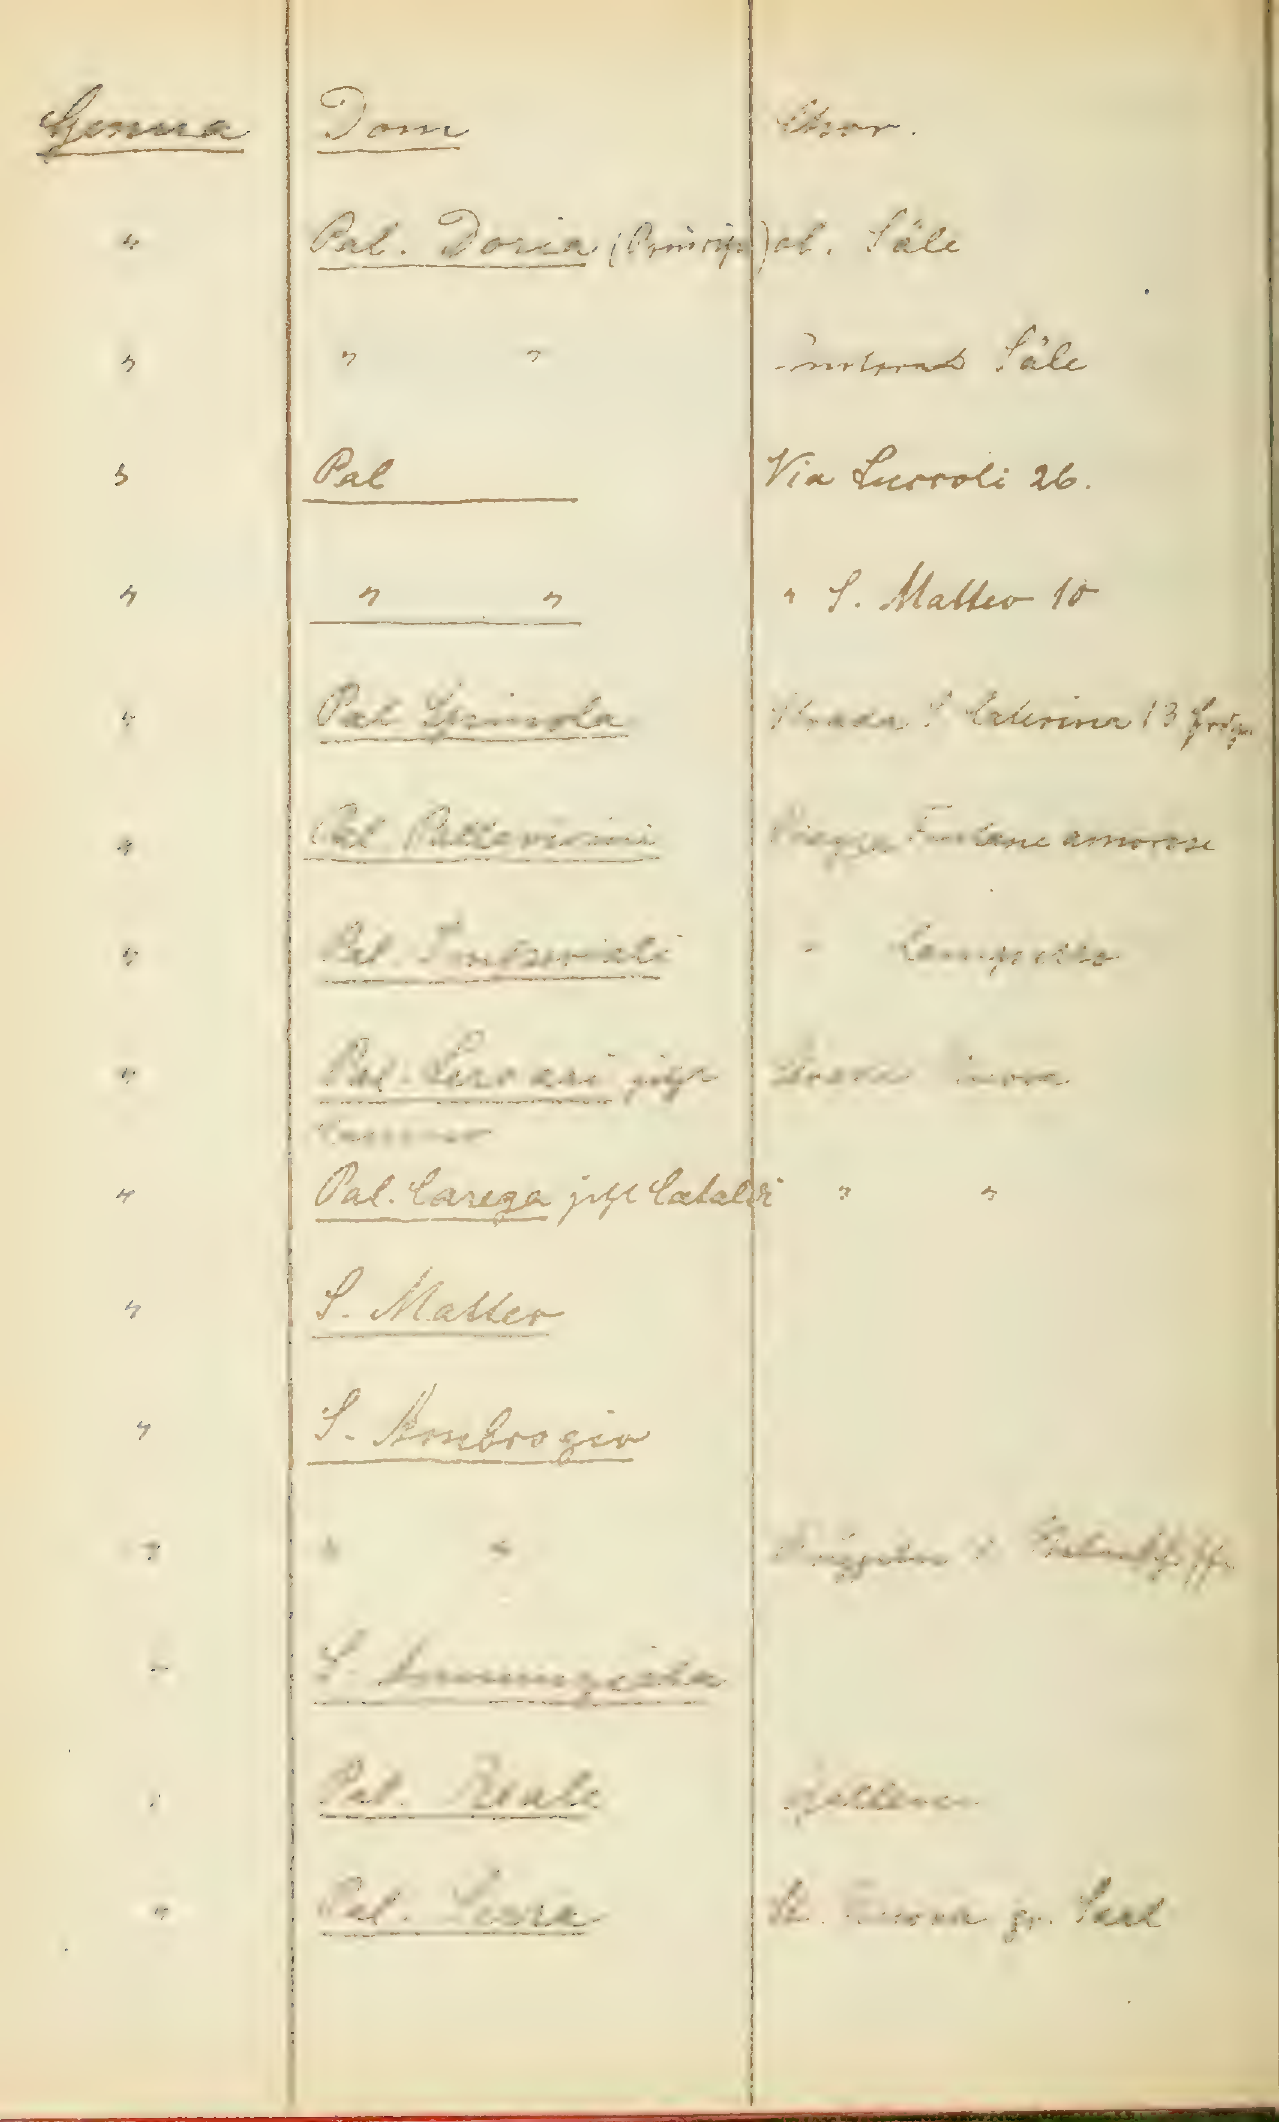 Genua Dom Chor.
" Pal. Doria (Principe) ob. Säle
" " " untere Säle
" Pal Via Luccoli 26.
" " " " S. Matteo 10
" Pal Spinola Strada S Caterina 13
" Pal Pallavicini Piazza Fontane amorose
" Pal. Imperiali " Campetto
" Pal. Lercari jetzt Strada Nuova
" Pal. Carega jetzt Cataldi " "
" S. Matteo
" S. Ambrogio
" " "
" S. Annunziata
" Pal. Reale Gallerie
" Pal. Serra St. Nuova gr. Saal